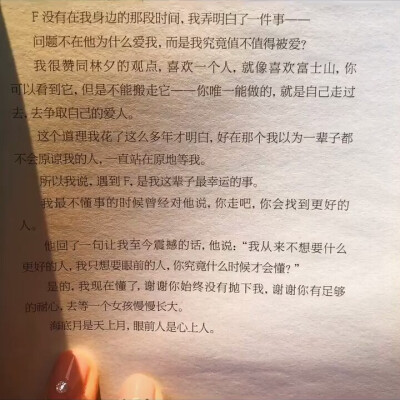 F 没有在我身边的那段时间,我弄明白了一件事——
问题不在他为什么爱我,而是我究竟值不值得被爱?
我很赞同林夕的观点,喜欢一个人,就像喜欢富士山,你
可以看到它,但是不能搬走它——你唯一能做的,就是自己走过
去,去争取自己的爱人。
这个道理我花了这么多年才明白,好在那个我以为一辈子都
不会原谅我的人,一直站在原地等我。
所以我说,遇到 F,是我这辈子最幸运的事。
我最不懂事的时候曾经对他说,你走吧,你会找到更好的
人。
他回了一句让我至今震撼的话,他说:“我从来不想要什么
更好的人,我只想要眼前的人,你究竟什么时候才会懂?”
是的,我现在懂了,谢谢你始终没有抛下我,谢谢你有足够
的耐心,去等一个女孩慢慢长大。
海底月是天上月,眼前人是心上人。